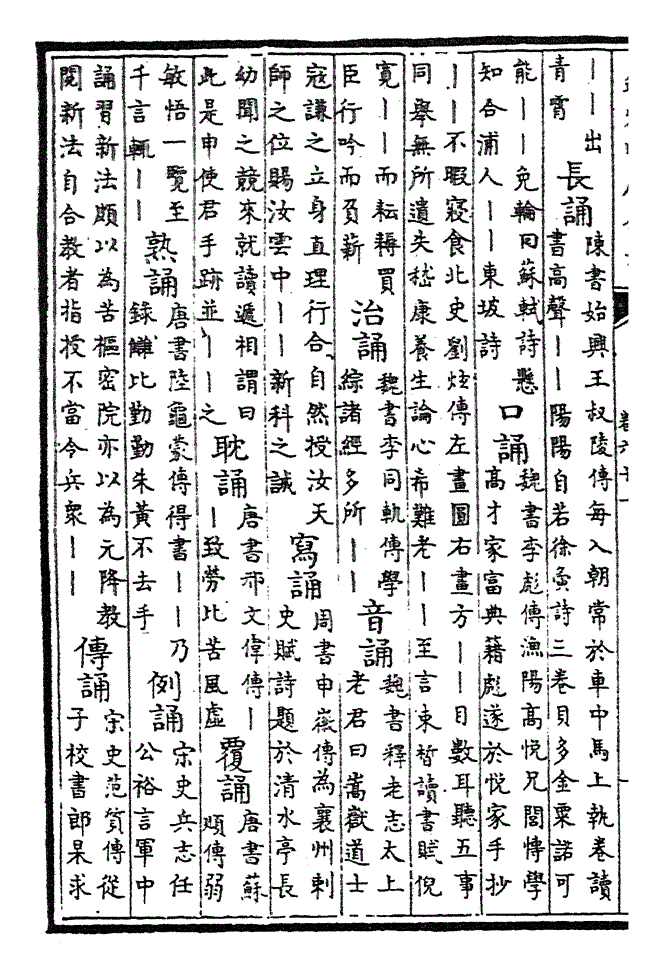 ——出
青霄
長誦
陳書始興王叔陵傳每入朝常於車中馬上執卷讀
書高聲——陽陽自若徐夤詩三卷貝多金粟諾可
能——免輪囘蘇軾詩懸
知合浦人——東坡詩
口誦
魏書李彪傳漁陽高悅兄閭博學
高才家富典籍彪遂於悅家手抄
——不暇寢食北史劉炫傳左畫圓右畫方——目數耳聽五事
同舉無所遺失嵇康養生論心希難老——至言束晳讀書賦倪
寛——而耘耨買
臣行吟而負薪
治誦
魏書李同軌傳學
綜諸經多所——
音誦
魏書釋老志太上
老君曰嵩嶽道士
寇謙之立身直理行合自然授汝天
師之位賜汝雲中——新科之誡
寫誦
周書申徽傳為襄州刺
史賦詩題於清水亭長
幼聞之競來就讀遞相謂曰
此是申使君手跡並——之
耽誦
唐書邢文偉傳—
—致勞比苦風虛
覆誦
唐書蘇
頲傳弱
敏悟一覽至
千言輒——
熟誦
唐書陸龜蒙傳得書——乃
錄讎比勤勤朱黃不去手
例誦
宋史兵志任
公裕言軍中
誦習新法頗以為苦樞密院亦以為元降教
閱新法自合教者指授不當令兵衆——
傳誦
宋史范質傳從
子校書郎杲求